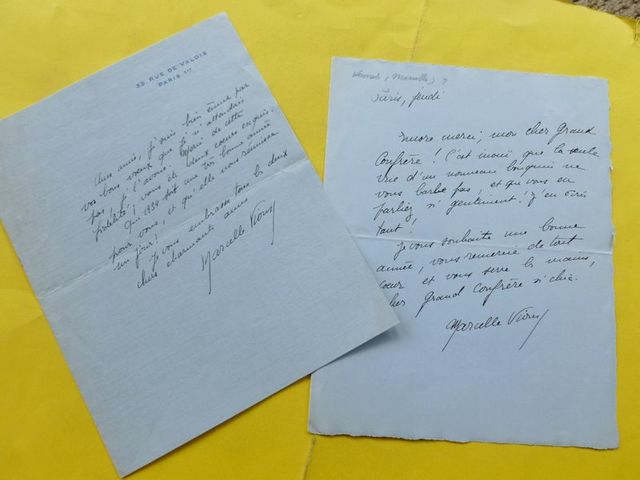 35 RUE DE VALOIS
PARIS 1er
Chers amis, je suis bien émue par
vos bons vœux que je n'attendais
pas, je l'avoue! de cette
fidélité, de deux cœurs exquis.
Que 1954 soit une bonne année
pour vous, et qu'elle nous réunisse
un jour!
Je vous embrasse tous les deux
chers charmants amis
Marcelle Vioux
(Marcelle) ?
Paris, jeudi
Encore merci, mon cher Grand
Confrère! C'est inouï que la seule
vue d'un nouveau bouquin ne
vous barbe pas, et que vous en
parliez si gentiment. J'en écris
tant!
Je vous souhaite une bonne
année, vous remercie de tout
cœur et vous serre les mains,
cher Grand Confrère si chic.
Marcelle Vioux